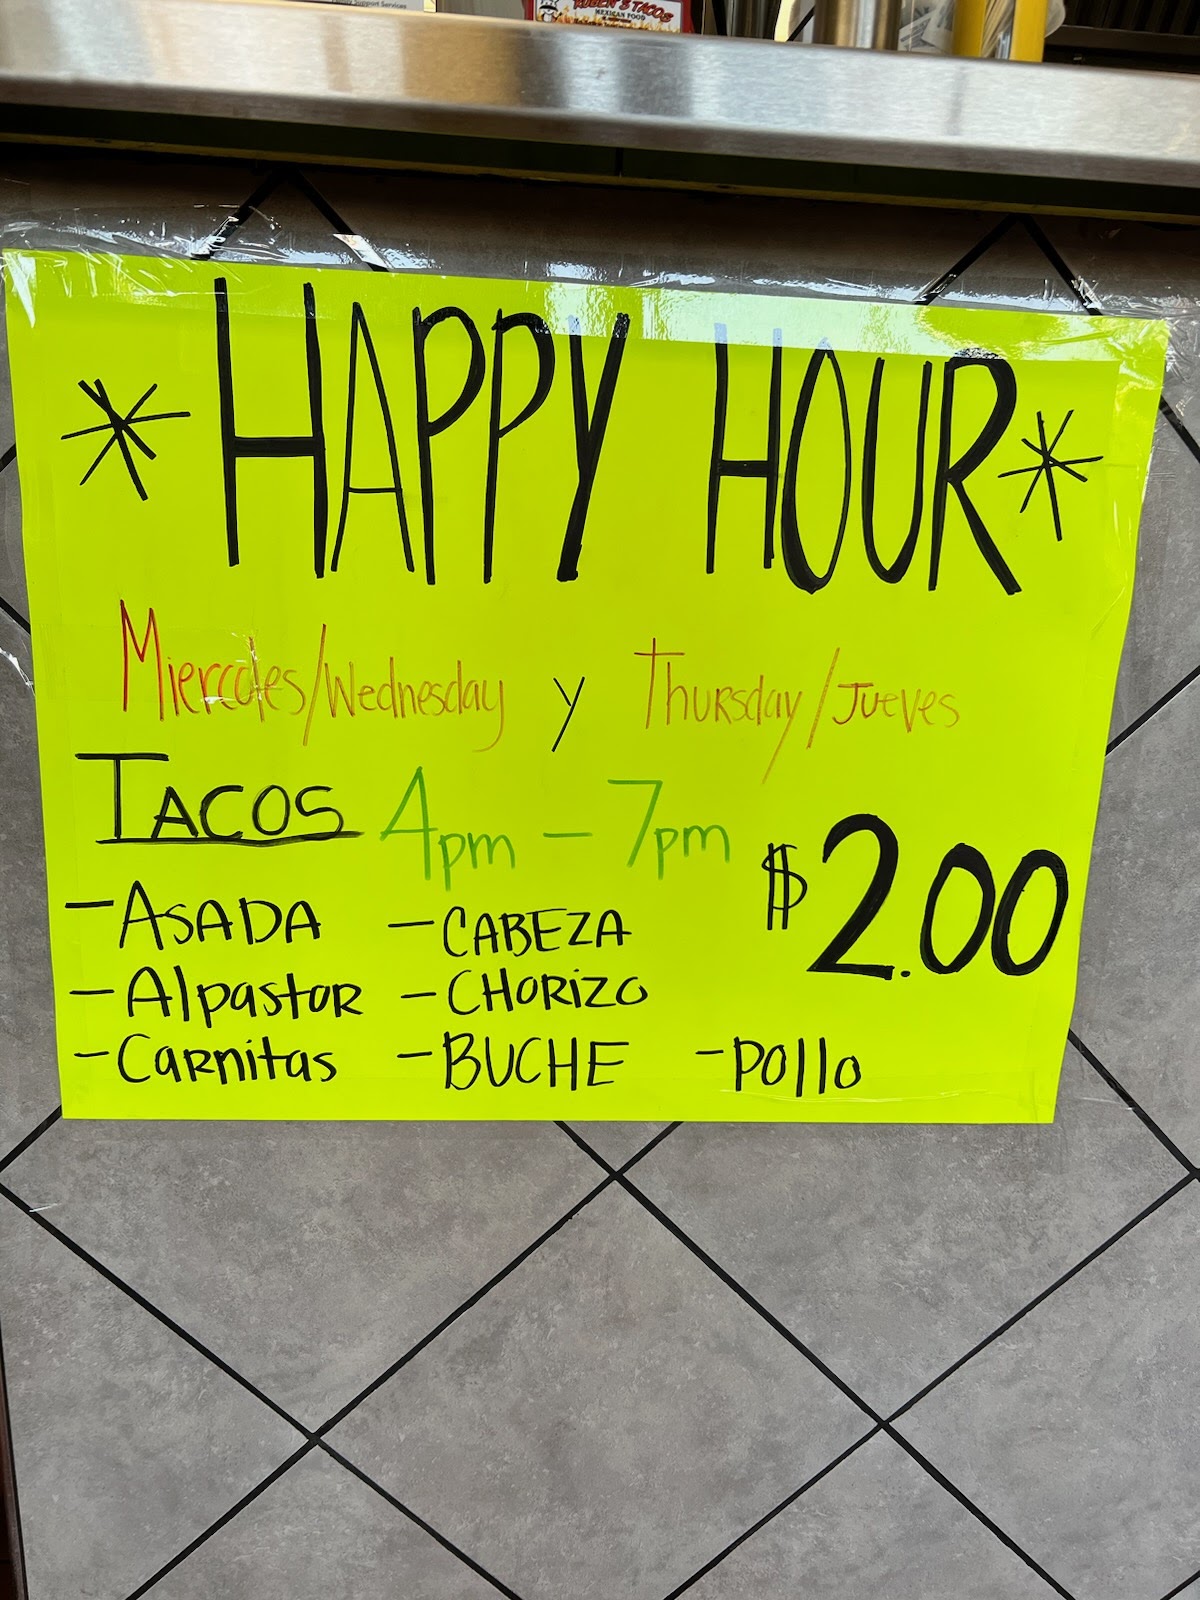 Support Services
RUBEN'S TACOS
MEXICAN FOOD
* HAPPY HOUR *
Miercoles/Wednesday y Thursday/Jueves
TACOS 4pm - 7pm
$2.00
- ASADA - CABEZA
- Alpastor - CHORIZO
- Carnitas - BUCHE - Pollo